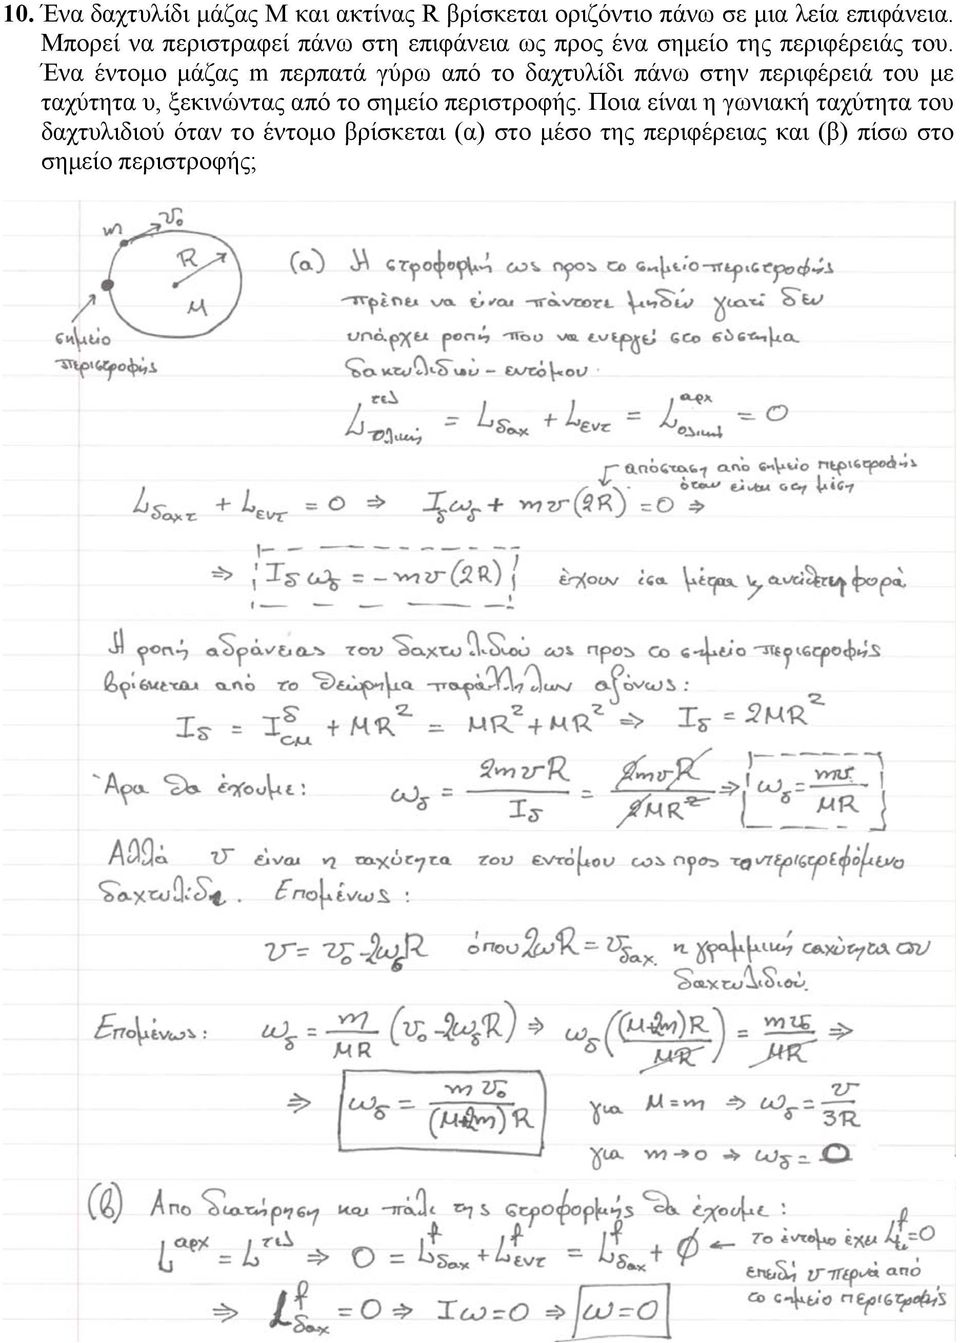 10. Ένα δαχτυλίδι μάζας Μ και ακτίνας R βρίσκεται οριζόντιο πάνω σε μια λεία επιφάνεια.
Μπορεί να περιστραφεί πάνω στη επιφάνεια ως προς ένα σημείο της περιφέρειάς του.
Ένα έντομο μάζας m περπατά γύρω από το δαχτυλίδι πάνω στην περιφέρειά του με
ταχύτητα υ, ξεκινώντας από το σημείο περιστροφής. Ποια είναι η γωνιακή ταχύτητα του
δαχτυλιδιού όταν το έντομο βρίσκεται (α) στο μέσο της περιφέρειας και (β) πίσω στο
σημείο περιστροφής;
m v₀
R
M
σημείο
περιστροφής
(α) Η στροφορμή ως προς το σημείο περιστροφής
πρέπει να είναι πάντοτε μηδέν γιατί δεν
υπάρχει ροπή που να ενεργεί στο σύστημα
δακτυλιδιού - εντόμου.
L^τελ_ολική = L_δαχ + L_εντ = L^αρχ_ολική = 0
απόσταση από σημείο περιστροφής
όταν είναι στη μέση
L_δαχτ + L_εντ = 0 ⇒ I_δ ω_δ + mv(2R) = 0 ⇒
⇒ I_δ ω_δ = -mv(2R) έχουν ίσα μέτρα κ αντίθετη φορά
Η ροπή αδράνειας του δαχτυλιδιού ως προς το σημείο περιστροφής
βρίσκεται από το θεώρημα παράλληλων αξόνων:
I_δ = I^δ_CM + MR² = MR² + MR² ⇒ I_δ = 2MR²
Άρα θα έχουμε: ω_δ = 2mvR / I_δ = 2mvR / 2MR² ⇒ ω_δ = mv / MR
Αλλά v είναι η ταχύτητα του εντόμου ως προς το περιστρεφόμενο
δαχτυλίδι. Επομένως:
v = v₀ - 2ω_δR όπου 2ωR = v_δαχ. η γραμμική ταχύτητα του
δαχτυλιδιού.
Επομένως: ω_δ = m / MR (v₀ - 2ω_δR) ⇒ ω_δ ((M+2m)R / MR) = mv₀ / MR ⇒
⇒ ω_δ = mv₀ / (M+2m)R για M=m ⇒ ω_δ = v / 3R
για m→0 ⇒ ω_δ = 0
(β) Απο διατήρηση και πάλι της στροφορμής θα έχουμε:
L^αρχ = L^τελ ⇒ 0 = L^f_δαχ + L^f_εντ = L^f_δαχ + 0 ← Το έντομο έχει L^f_εν=0
επειδή v περνά από
το σημείο περιστροφής
⇒ L^f_δαχ = 0 ⇒ Iω=0 ⇒ ω=0